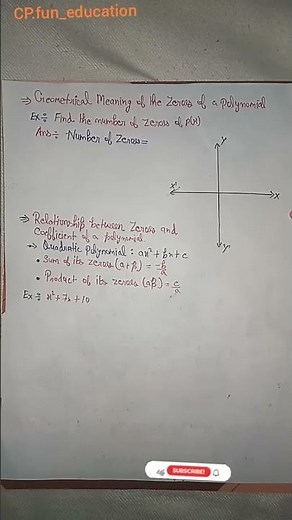 CP.fun_education
⇒ Geometrical Meaning of the Zeroes of a Polynomial
Ex÷ Find the number of zeroes of P(x)
Ans÷ Number of Zeroes=
Y
X'
X
Y'
⇒ Relationship between Zeroes and
Coefficient of a polynomial.
→ Quadratic Polynomial : ax²+bx+c
• Sum of its zeroes (α+β) = -b/a
• Product of its zeroes (αβ) = c/a
Ex÷ x²+7x+10
SUBSCRIBE